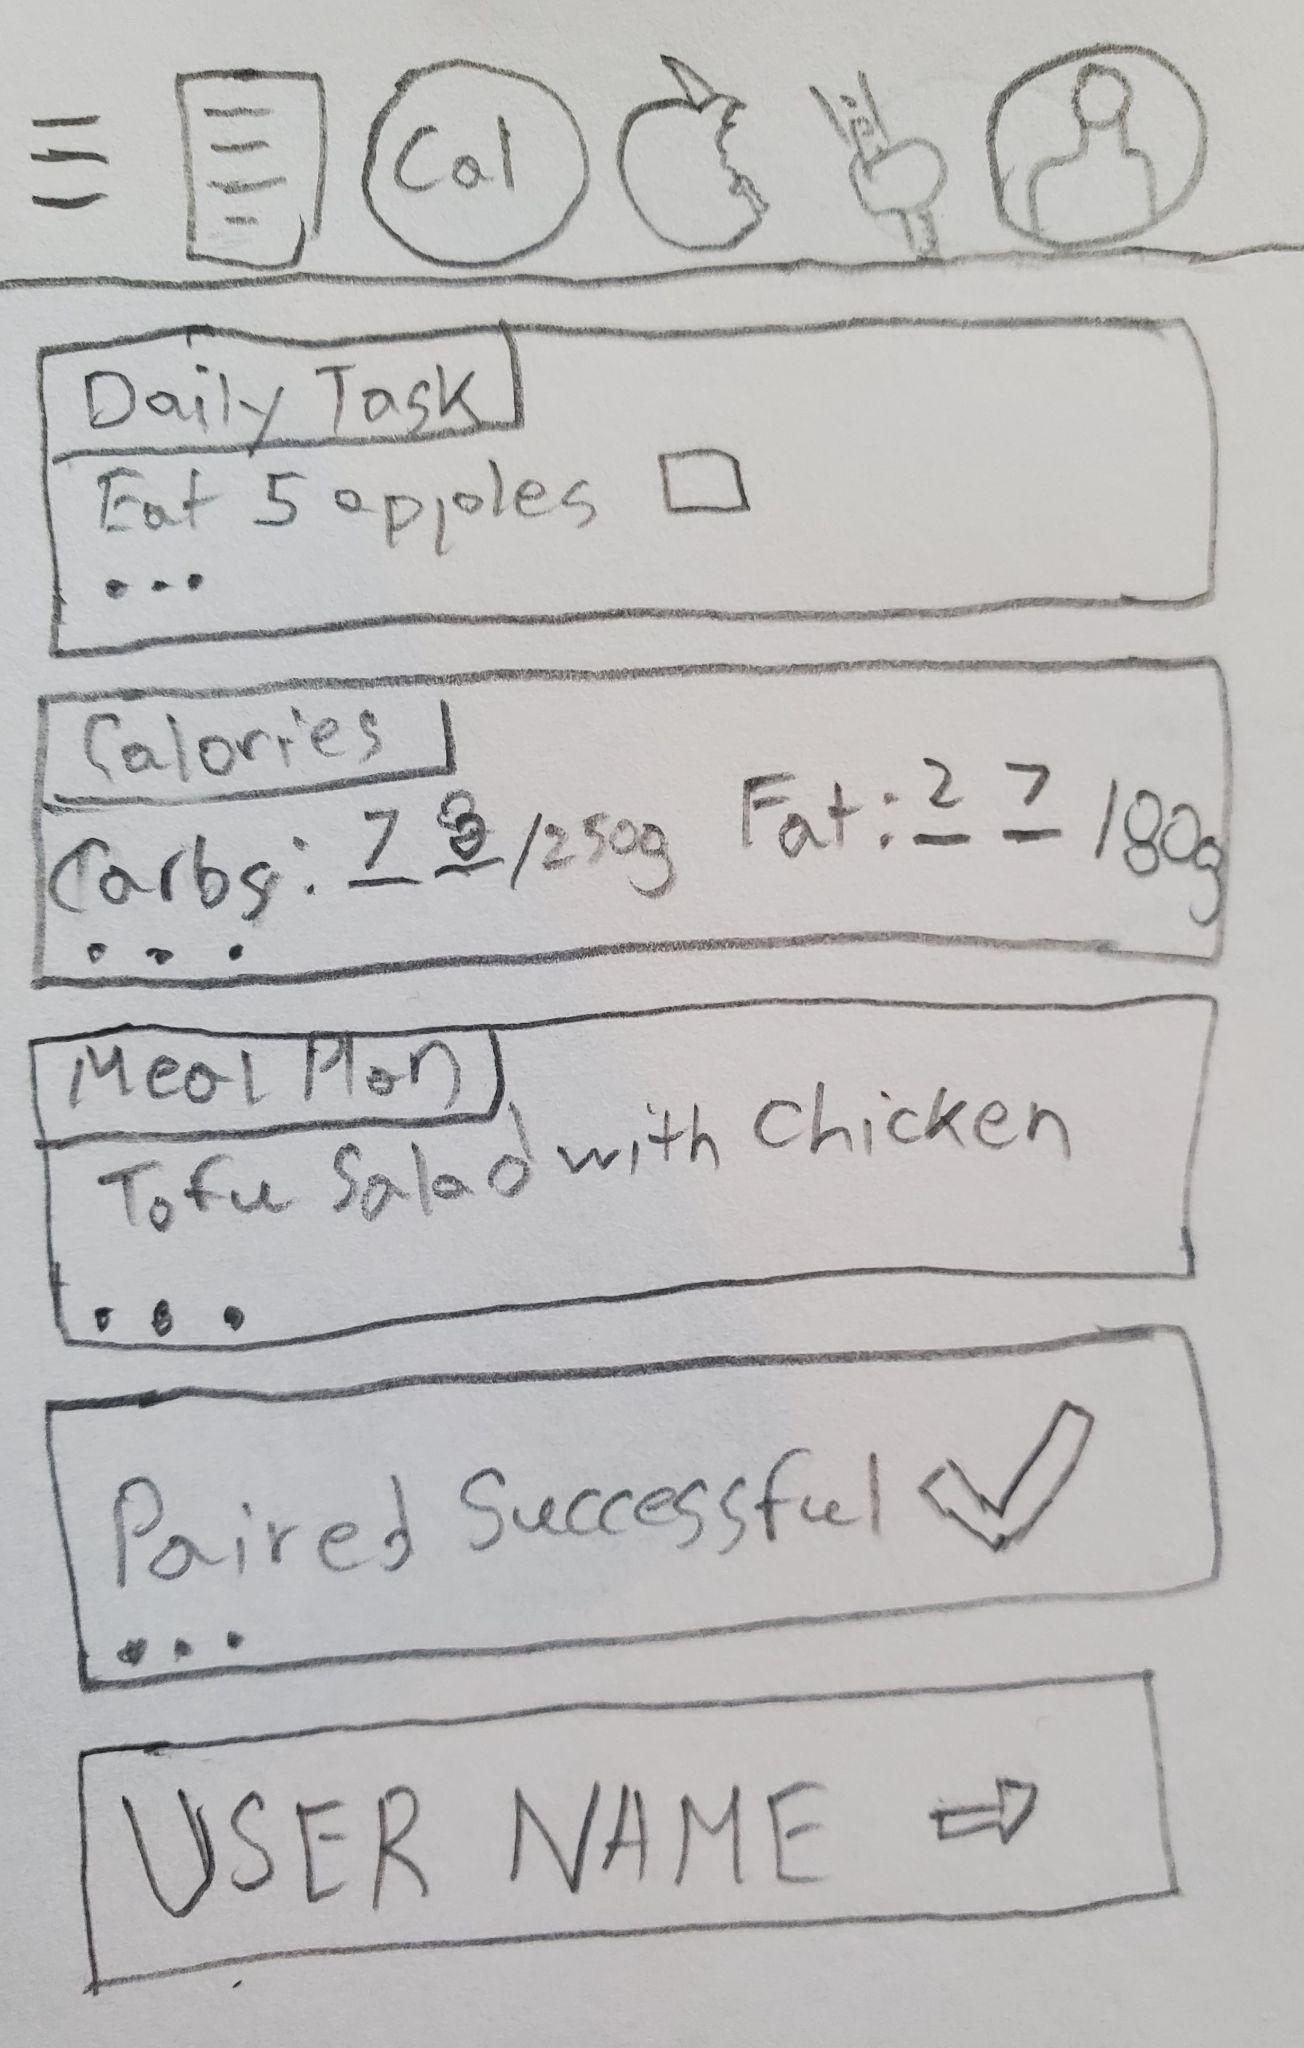 Cal
Daily Task
Eat 5 apples
...
Calories
Carbs: 7 8/250g Fat: 2 7/180g
...
Meal Plan
Tofu Salad with Chicken
...
Paired Successful
...
USER NAME